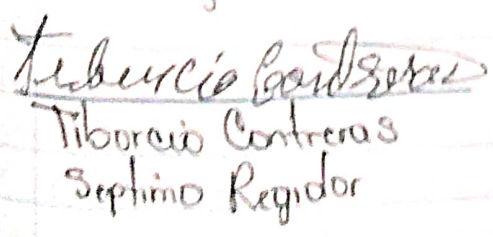 Tiburcio Contreras
Tiborcio Contreras
Septimo Regidor